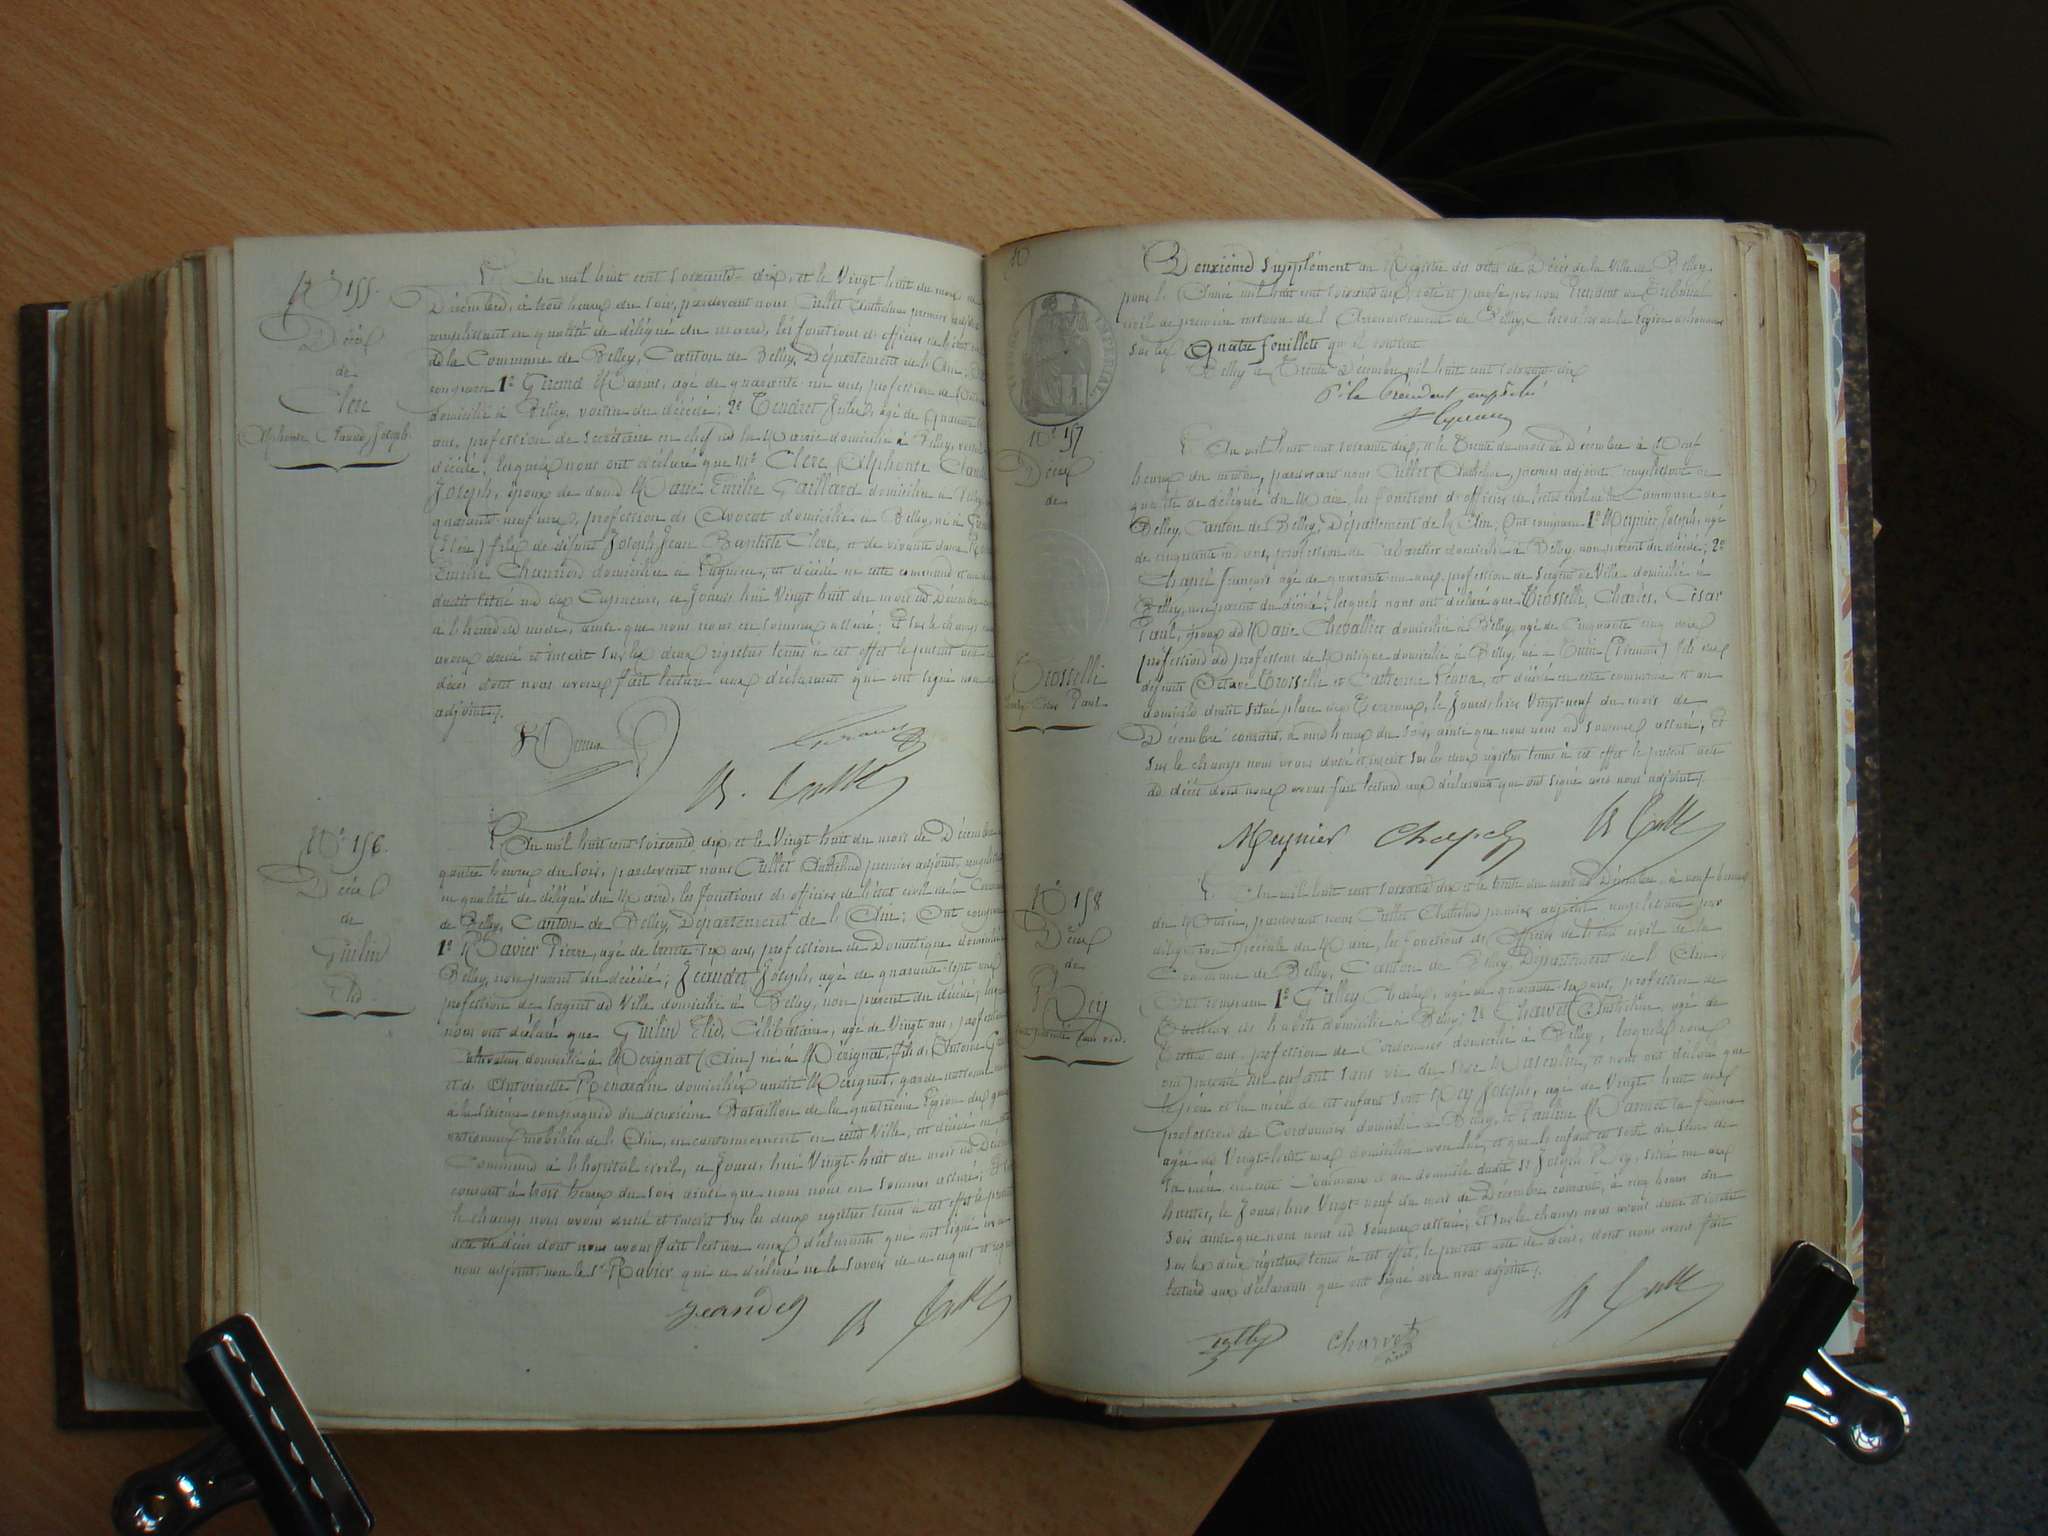 N° 155.
Décès
de
Clerc
Alphonse Claude Joseph.
L'An mil huit cent soixante-dix, et le Vingt huit du mois de
Décembre, à trois heures du soir, pardevant nous Cullet Anthelme premier
remplissant en qualité de délégué du maire, les fonctions d'officier de l'état civil
de la Commune de Belley, Canton de Belley, Département de l'Ain,
comparu 1° Marius, agé de quarante un ans, profession de
domicilié à Belley, voisin du décédé; 2° Tendret Jules, agé de quarante
ans, profession de secrétaire en chef de la Mairie domicilié à Belley,
décédé; lesquels nous ont déclaré que Mr Clerc Alphonse Claude
Joseph, époux de dame Marie Emilie Gaillard domiciliée à Belley
quarante neuf ans, profession d'Avocat domicilié à Belley, né à
(Isère) fils de défunt Joseph Jean Baptiste Clerc, et de vivante dame
Emilie domiciliée à et décédé en cette commune et
situé rue des ce jourd'hui Vingt huit du mois de Décembre
à l'heure de midi, ainsi que nous nous en sommes assuré; Et sur le champ
avons dressé et inscrit sur les deux registres tenus à cet effet le présent acte
décès dont nous avons fait lecture aux déclarants qui ont signé
adjoint.
N° 156.
Décès
de
Guilin
Elie.
L'An mil huit cent soixante dix, et le Vingt huit du mois de Décembre
quatre heures du soir, pardevant nous Cullet Anthelme premier adjoint, remplissant
en qualité de délégué du Maire, les fonctions d'officier de l'état civil de la Commune
de Belley, Canton de Belley, Département de l'Ain; Ont comparu
1° Ravier Pierre, agé de trente six ans, profession de Domestique domicilié
Belley, non parent du décédé; Jeandet Joseph, agé de quarante sept ans
profession de sergent de Ville domicilié à Belley, non parent du décédé;
nous ont déclaré que Guilin Elie, Célibataire, agé de Vingt ans, profession
Cultivateur domicilié à Mérignat (Ain) né à Mérignat, fils d'Antoine
et d'Antoinette Renardin domiciliés audit Mérignat, garde national
à la sixième compagnie du deuxième Bataillon de la quatrième Légion des
nationaux mobilisés de l'Ain, en cantonnement en cette Ville, est décédé en
Commune à l'hôpital civil, ce jourd'hui Vingt-huit du mois de Décembre
courant à trois heures du soir ainsi que nous nous en sommes assuré;
le champ nous avons dressé et inscrit sur les deux registres tenus à cet effet le présent
acte de décès dont nous avons fait lecture aux déclarants qui ont signé
nous adjoint, non le Sr Ravier qui a déclaré ne le savoir de ce enquis et
Jeandet
Deuxième supplément au Registre des actes de Décès de la Ville de Belley,
pour l'Année mil huit cent soixante dix, coté et paraphé par nous Président du Tribunal
civil de première instance de l'Arrondissement de Belley, Chevalier de la Légion d'honneur
sur les Quatre feuillets qu'il contient
Belley le Trente Décembre mil huit cent soixante dix
Pr le Président empêché
N° 157
Décès
de
Trosselli
Charles César Paul.
L'An mil huit cent soixante dix, et le Trente du mois de Décembre à Neuf
heures du matin, pardevant nous Cullet Anthelme, premier adjoint remplissant en
qualité de délégué du Maire les fonctions d'officier de l'état civil de la Commune de
Belley, Canton de Belley, Département de l'Ain, Ont comparu 1° Meynier Joseph, agé
de cinquante ans, profession de Cabaretier domicilié à Belley, non parent du décédé; 2°
Chapel François agé de quarante un ans, profession de Sergent de Ville domicilié à
Belley, non parent du décédé; lesquels nous ont déclaré que Trosselli, Charles, César
Paul, époux de Marie Chevallier domiciliée à Belley, agé de Cinquante cinq ans
profession de professeur de Musique domicilié à Belley, né à Turin (Piémont) fils des
défunts Octave Trosselli et Catherine est décédé en cette commune et en
domicile dudit situé place des Terreaux, le Jourd'hier Vingt-neuf du mois de
Décembre courant, à onze heures du soir, ainsi que nous nous en sommes assuré; Et
sur le champ nous avons dressé et inscrit sur les deux registres tenus à cet effet le présent acte
de décès dont nous avons fait lecture aux déclarants qui ont signé avec nous adjoint.
Meynier Chapel
N° 158
Décès
de
Rey
L'An mil huit cent soixante dix et le trente du mois de Décembre, à neuf heures
du Matin, pardevant nous Cullet Anthelme premier adjoint remplissant par
délégation spéciale du Maire, les fonctions d'Officier de l'état civil de la
Commune de Belley, Canton de Belley Département de l'Ain,
Ont comparu 1° agé de quarante six ans, profession de
Tailleur d'habits domicilié à Belley; 2° Charvet Anthelme, agé de
Trente ans, profession de Cordonnier domicilié à Belley, lesquels nous
ont présenté un enfant sans vie du sexe Masculin, et nous ont déclaré que
le père et la mère de cet enfant sont Rey Joseph, agé de Vingt huit ans
profession de Cordonnier domicilié à Belley, et Pauline sa femme
agée de Vingt-huit ans domiciliée avec lui, et que le enfant est sorti du sein de
sa mère, en cette Commune et au domicile dudit Sr Joseph Rey, situé rue des
le Jourd'hier Vingt-neuf du mois de Décembre courant, à cinq heures du
soir ainsi que nous nous en sommes assuré; Et sur le champ nous avons dressé et inscrit
sur les deux registres tenus à cet effet, le présent acte de décès, dont nous avons fait
lecture aux déclarants qui ont signé avec nous adjoint.
Charvet